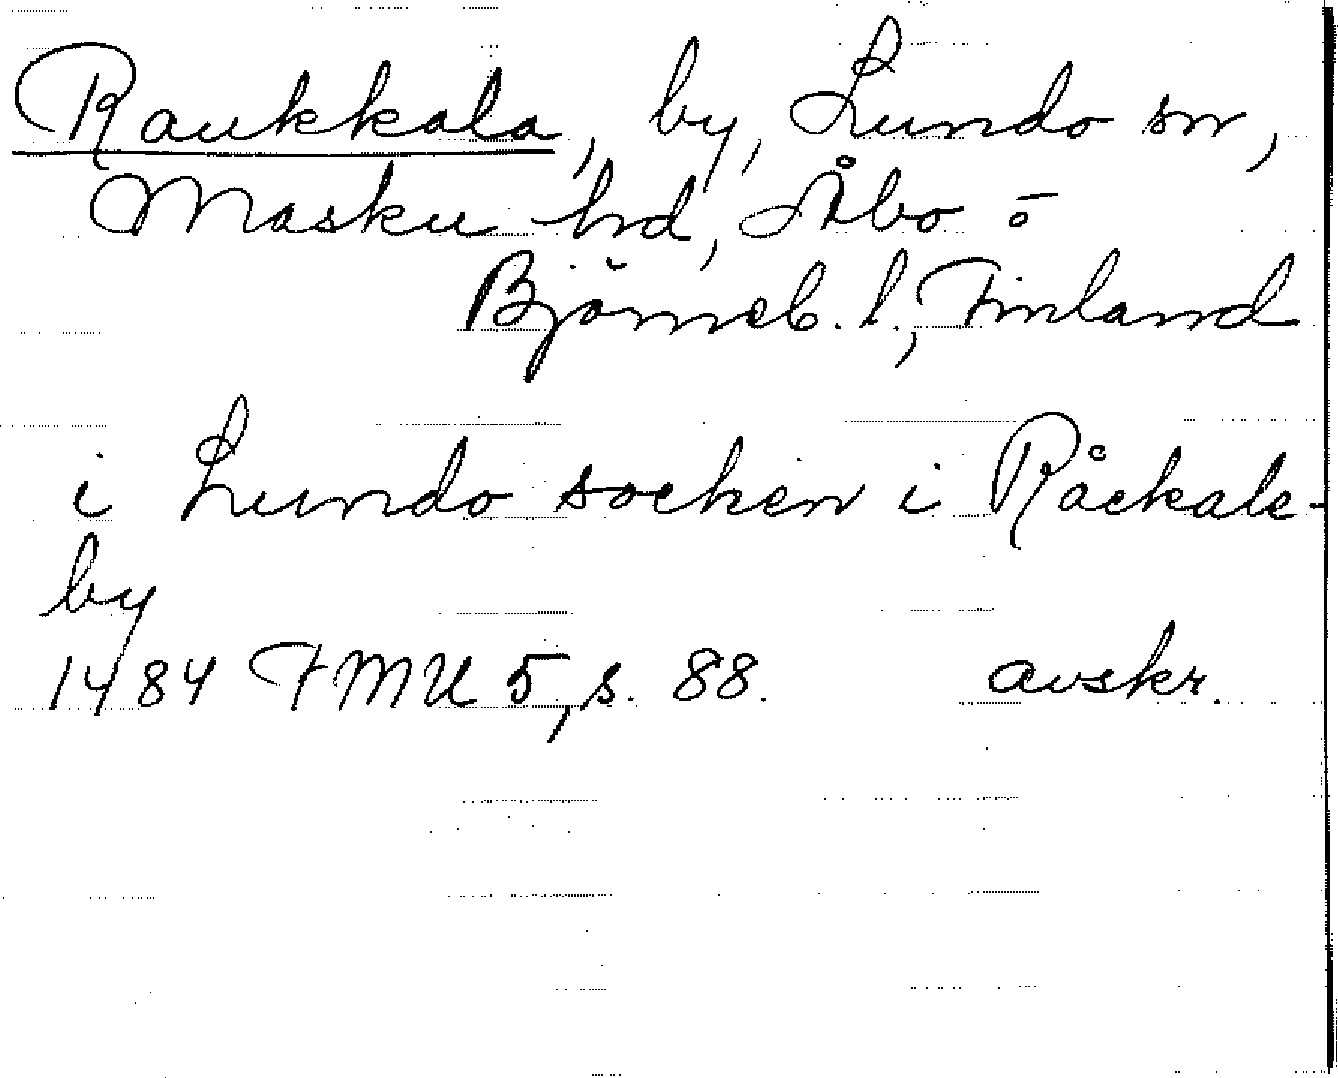 Raukkala, by, Lundo sn,
Masku hd, Åbo o
Björneb. l., Finland
i Lundo socken i Råckale-
by
1484 FMU 5, s. 88. avskr.